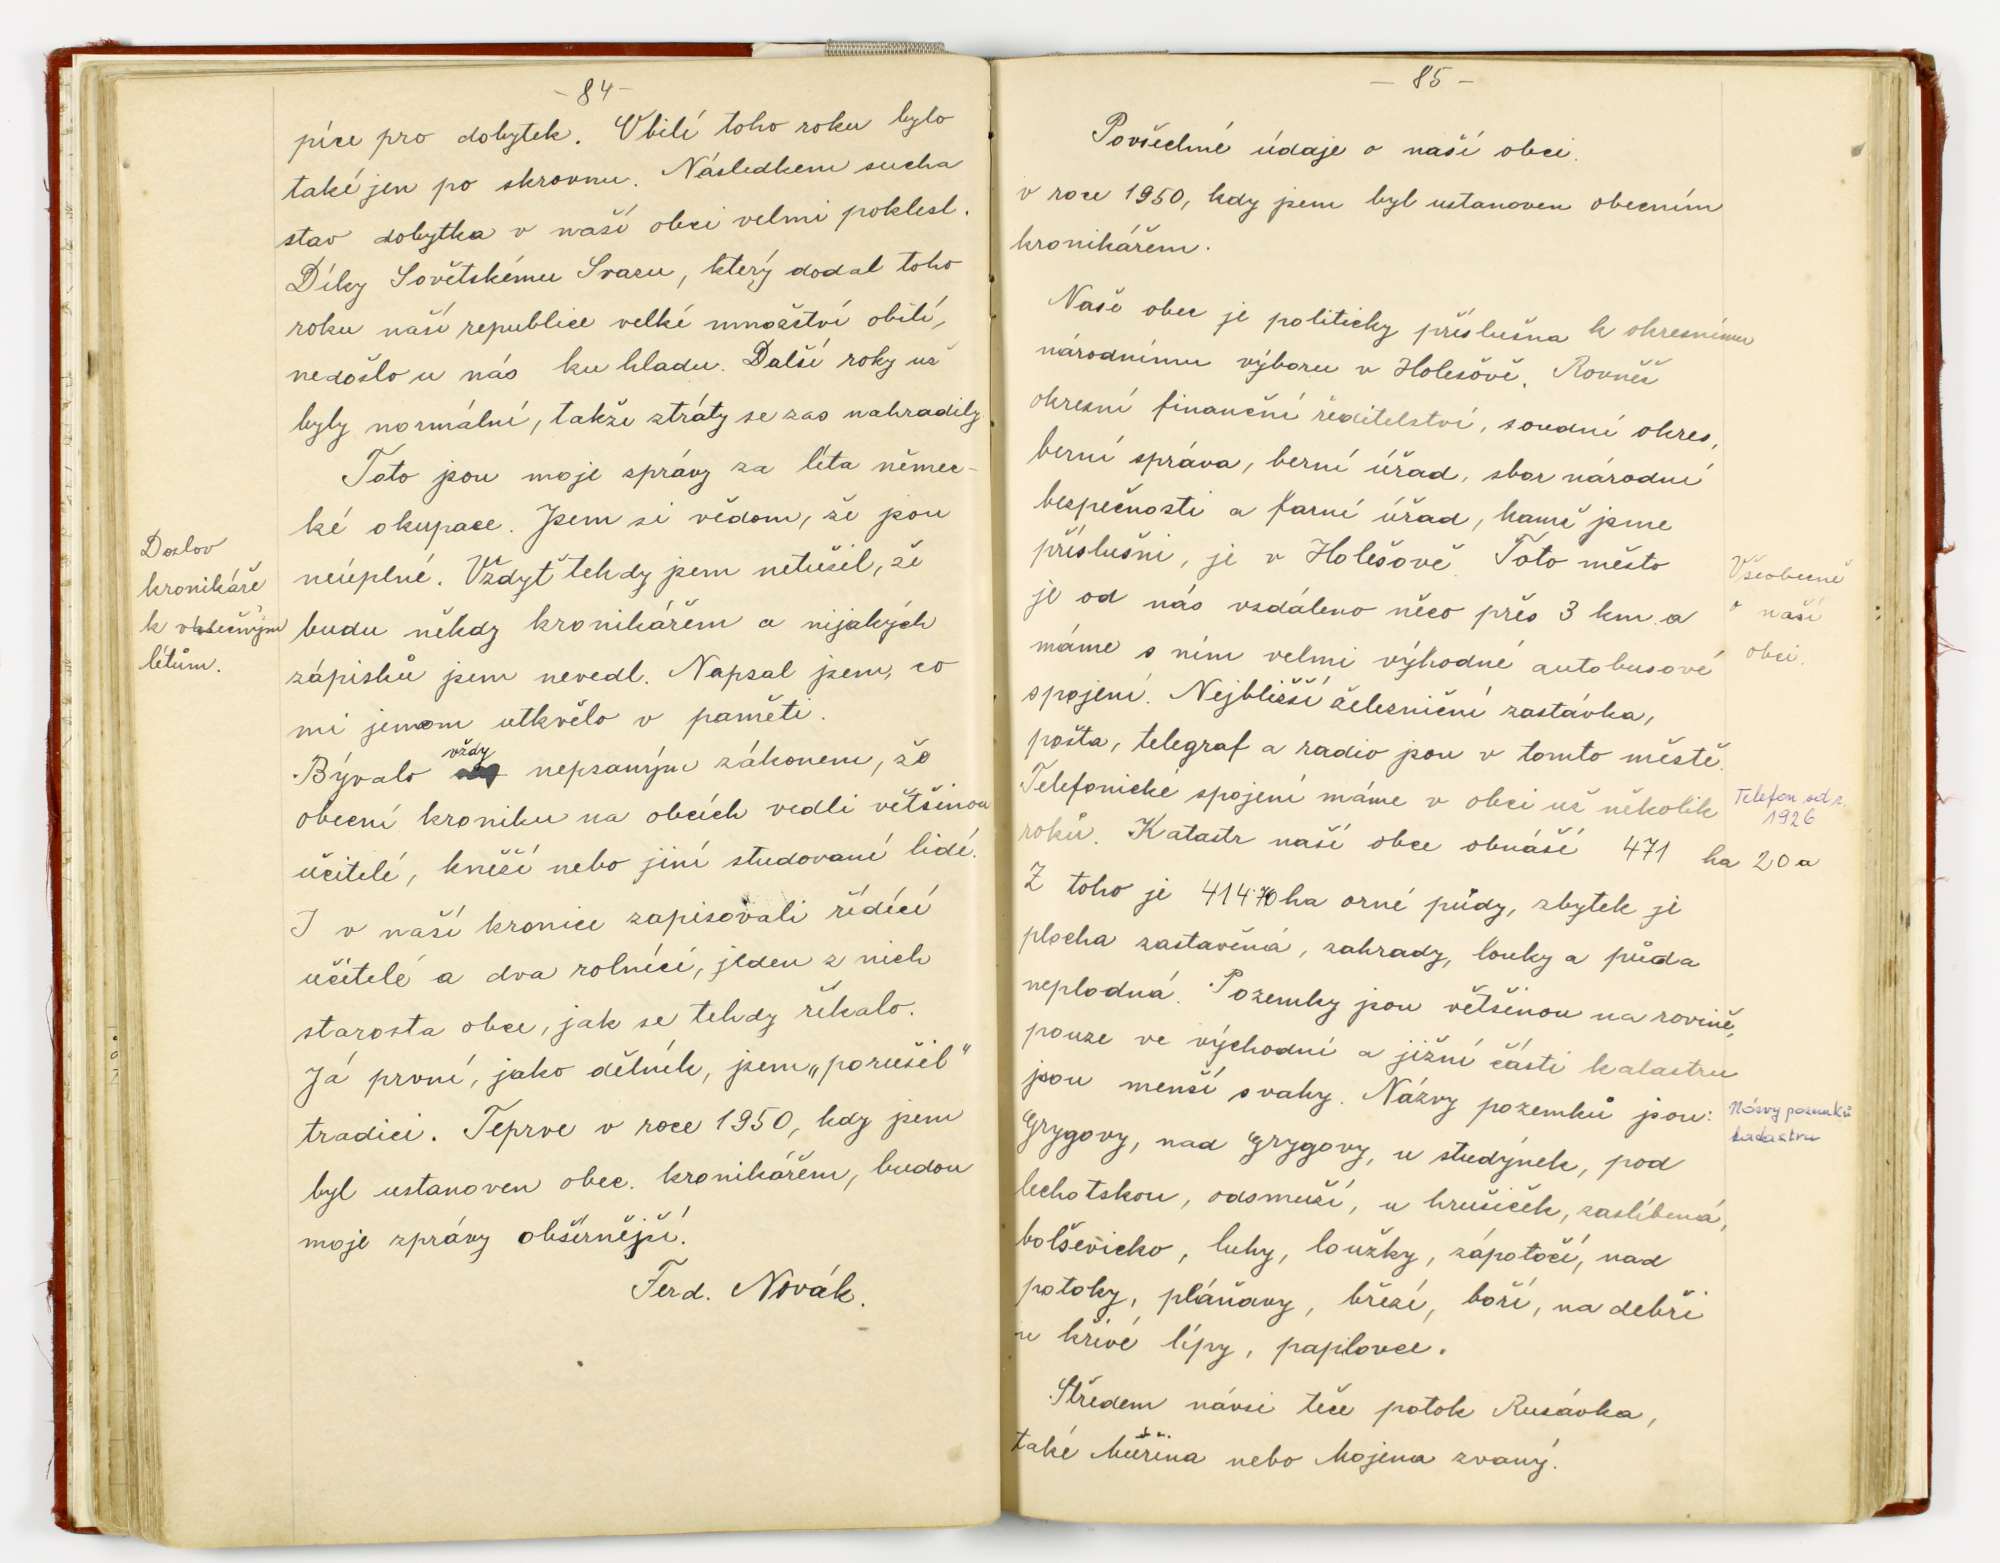 - 84 -
píce pro dobytek. Obilí toho roku bylo
také jen po skrovnu. Následkem sucha
stav dobytka v naší obci velmi poklesl.
Díky Sovětskému Svazu, který dodal toho
roku naší republice velké množství obilí,
nedošlo u nás ku hladu. Další roky už
byly normální, takže ztráty se zas nahradily
Toto jsou moje zprávy za léta němec-
ké okupace. Jsem si vědom, že jsou
neúplné. Vždyť tehdy jsem netušil, že
budu někdy kronikářem a nijakých
zápisků jsem nevedl. Napsal jsem, co
mi jenom utkvělo v paměti.
Doslov
kronikáře
k válečným
létům.
Bývalo vždy nepsaným zákonem, že
obecní kroniku na obcích vedli většinou
učitelé, kněží nebo jiní studovaní lidé.
I v naší kronice zapisovali řídící
učitelé a dva rolníci, jeden z nich
starosta obce, jak se tehdy říkalo.
Já první, jako dělník, jsem „porušil“
tradici. Teprve v roce 1950, kdy jsem
byl ustanoven obec. kronikářem, budou
moje zprávy obšírnější.
Ferd. Novák.
- 85 -
Povšechné údaje o naší obci.
v roce 1950, kdy jsem byl ustanoven obecním
kronikářem.
Naše obec je politicky příslušna k okresnímu
národnímu výboru v Holešově. Rovněž
okresní finanční ředitelství, soudní okres,
berní správa, berní úřad, sbor národní
bezpečnosti a farní úřad, kamž jsme
příslušni, je v Holešově. Toto město
je od nás vzdáleno něco přes 3 km. a
máme s ním velmi výhodné autobusové
spojení. Nejbližší železniční zastávka,
pošta, telegraf a radio jsou v tomto městě.
Všeobecně
o naší
obci.
Telefonické spojení máme v obci už několik
roků. Katastr naší obce obnáší 471 ha 20 a
Telefon od r.
1926
Z toho je 414·70 ha orné půdy, zbytek je
plocha zastavěná, zahrady, louky a půda
neplodná. Pozemky jsou většinou na rovině,
pouze ve východní a jižní části katastru
jsou menší svahy. Názvy pozemků jsou:
Názvy pozemků
katastru
Grygovy, nad Grygovy, u studýnek, pod
lechotskou, odsmuží, u hrušiček, zaslíbená,
bolševicko, luhy, loužky, zápotočí, nad
potoky, pláňavy, březí, boří, na debři
u křivé lípy, paplovce.
Středem návsi teče potok Rusávka,
také Muřina nebo Mojena zvaný.